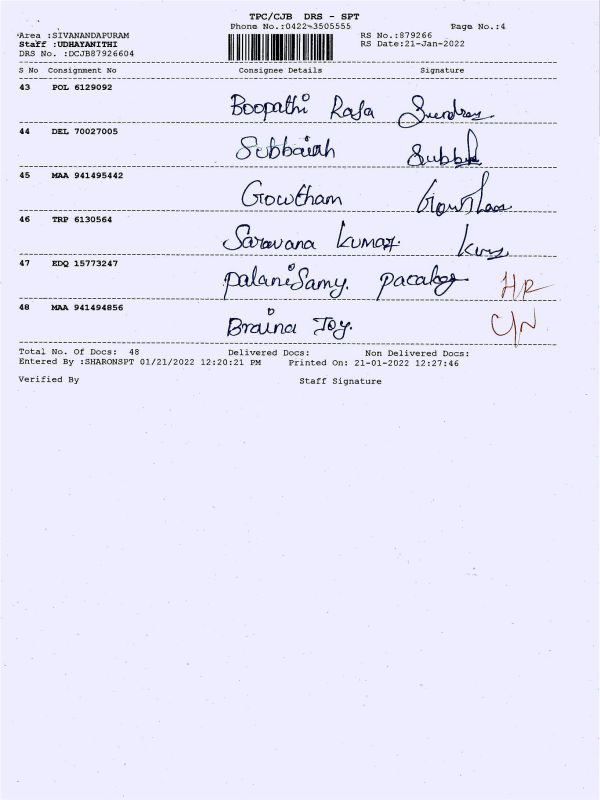 TPC/CJB DRS - SPT
Phone No.:0422-3505555 Page No.:4
Area :SIVANANDAPURAM RS No.:879266
Staff :UDHAYANITHI RS Date:21-Jan-2022
DRS No. :DCJB87926604
S No Consignment No Consignee Details Signature
43 POL 6129092
Boopathi Raja
44 DEL 70027005
Subbaiah
45 MAA 941495442
Gowtham Gowtham
46 TRP 6130564
Saravana kumar.
47 EDQ 15773247
palaniSamy. HR
48 MAA 941494856
Braina Joy. C/N
Total No. Of Docs: 48 Delivered Docs: Non Delivered Docs:
Entered By :SHARONSPT 01/21/2022 12:20:21 PM Printed On: 21-01-2022 12:27:46
Verified By Staff Signature